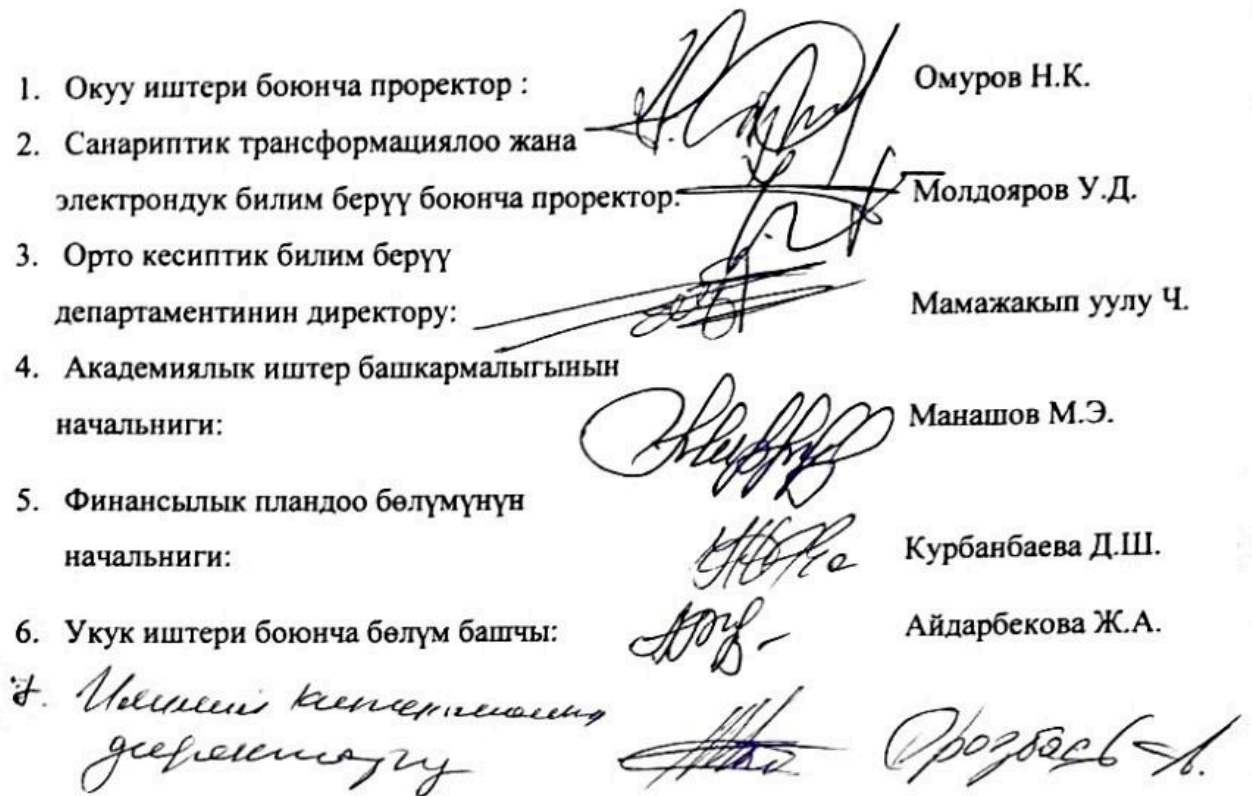 1. Окуу иштери боюнча проректор : Омуров Н.К.
2. Санариптик трансформациялоо жана
электрондук билим берүү боюнча проректор: Молдояров У.Д.
3. Орто кесиптик билим берүү
департаментинин директору: Мамажакып уулу Ч.
4. Академиялык иштер башкармалыгынын
начальниги: Манашов М.Э.
5. Финансылык пландоо бөлүмүнүн
начальниги: Курбанбаева Д.Ш.
6. Укук иштери боюнча бөлүм башчы: Айдарбекова Ж.А.
7. Илимий китепкананын
директору